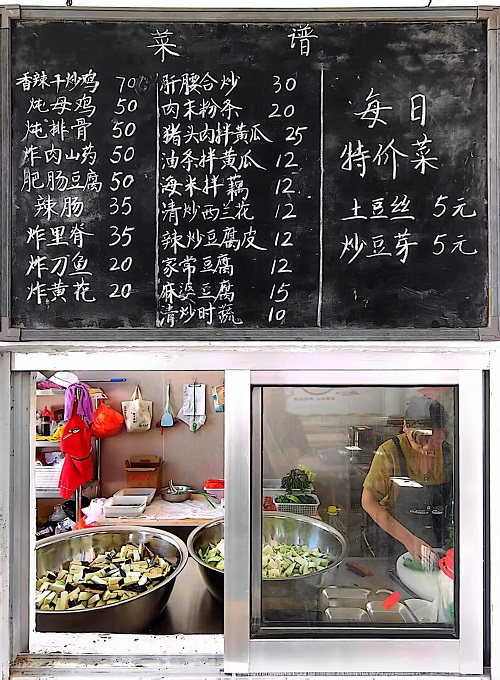 菜 谱
香辣干炒鸡 70
炖母鸡 50
炖排骨 50
炸肉山药 50
肥肠豆腐 50
辣肠 35
炸里脊 35
炸刀鱼 20
炸黄花 20
肝腰合炒 30
肉末粉条 20
猪头肉拌黄瓜 25
油条拌黄瓜 12
海米拌藕 12
清炒西兰花 12
辣炒豆腐皮 12
家常豆腐 12
麻婆豆腐 15
清炒时蔬 10
每日
特价菜
土豆丝 5元
炒豆芽 5元